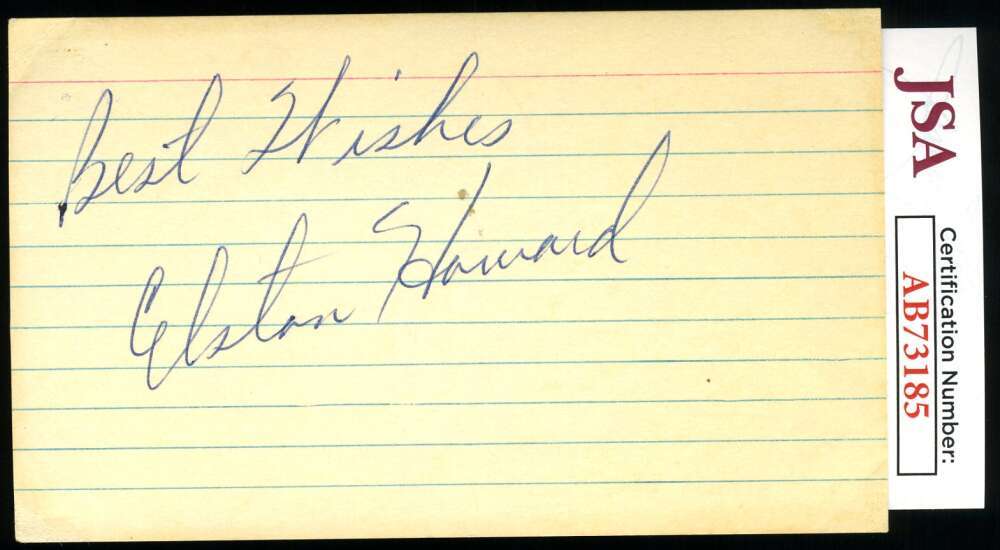 Best Wishes
Elston Howard
JSA
Certification Number:
AB73185